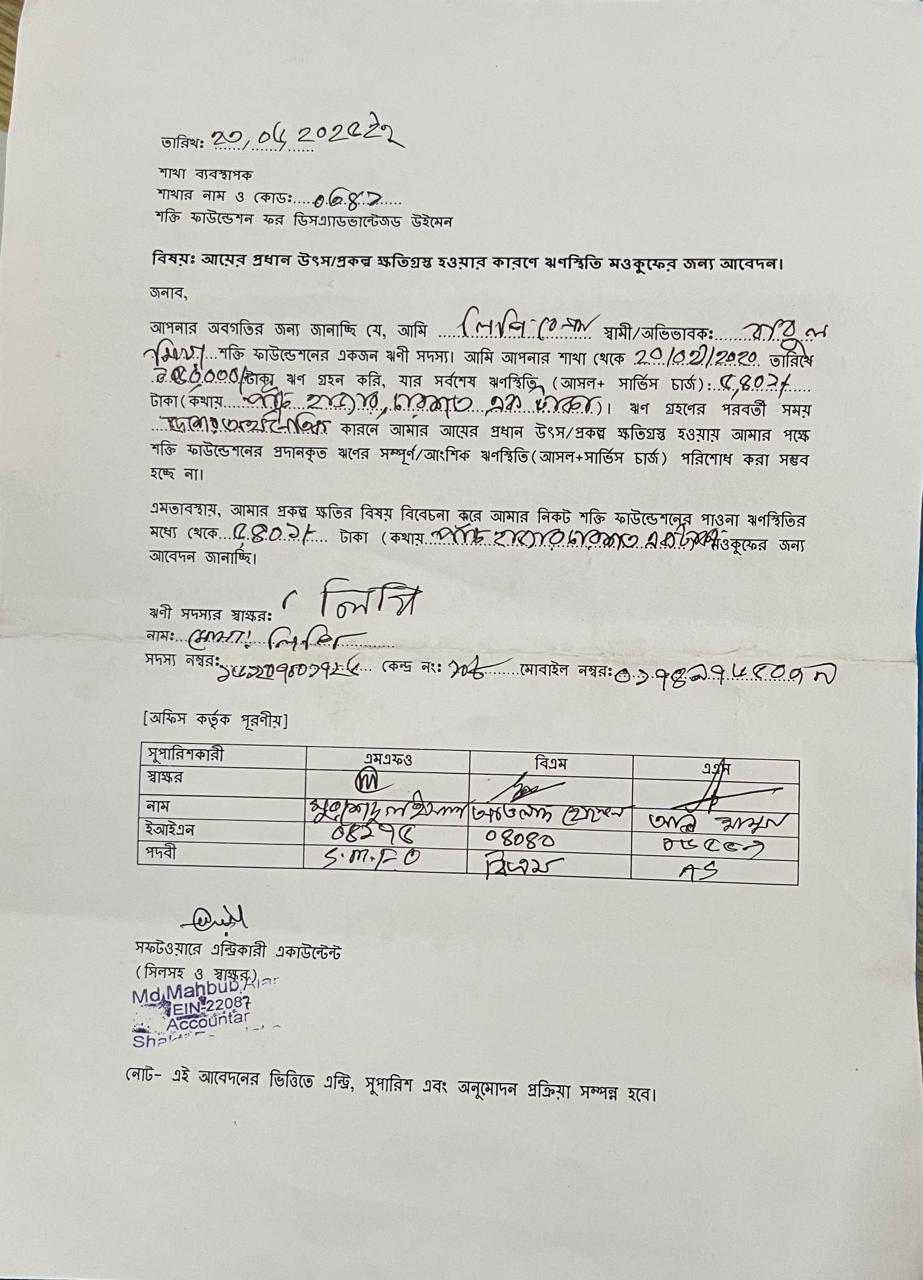 তারিখ: ২০,০৫ ২০২৫ইং
শাখা ব্যবস্থাপক
শাখার নাম ও কোড:....০৬৪২.....
শক্তি ফাউন্ডেশন ফর ডিসএ্যাডভান্টেজড উইমেন
বিষয়: আয়ের প্রধান উৎস/প্রকল্প ক্ষতিগ্রস্থ হওয়ার কারণে ঋণস্থিতি মওকুফের জন্য আবেদন।
জনাব,
আপনার অবগতির জন্য জানাচ্ছি যে, আমি লিপি বেগম স্বামী/অভিভাবক: বাবুল
মিয়া শক্তি ফাউন্ডেশনের একজন ঋণী সদস্য। আমি আপনার শাখা থেকে ২০/০২/২০২০ তারিখে
৫০,০০০/ টাকা ঋণ গ্রহন করি, যার সর্বশেষ ঋণস্থিতি (আসল+ সার্ভিস চার্জ): ৫,৪০১/
টাকা (কথায় পাঁচ হাজার, চারশত এক টাকা)। ঋণ গ্রহণের পরবর্তী সময়
কারনে আমার আয়ের প্রধান উৎস/প্রকল্প ক্ষতিগ্রস্থ হওয়ায় আমার পক্ষে
শক্তি ফাউন্ডেশনের প্রদানকৃত ঋণের সম্পূর্ণ/আংশিক ঋণস্থিতি (আসল+সার্ভিস চার্জ) পরিশোধ করা সম্ভব
হচ্ছে না।
এমতাবস্থায়, আমার প্রকল্প ক্ষতির বিষয় বিবেচনা করে আমার নিকট শক্তি ফাউন্ডেশনের পাওনা ঋণস্থিতির
মধ্যে থেকে ৫৪০১/ টাকা (কথায় পাঁচ হাজার চারশত এক টাকা মওকুফের জন্য
আবেদন জানাচ্ছি।
ঋণী সদস্যর স্বাক্ষর: লিপি
নাম: মোসা: লিপি
সদস্য নম্বর: কেন্দ্র নং: মোবাইল নম্বর:
[অফিস কর্তৃক পূরণীয়]
সুপারিশকারী এমএফও বিএম এএস
স্বাক্ষর
নাম
ইআইএন 08275 08080
পদবী S.M.F.O বিএম AS
সফটওয়ারে এন্ট্রিকারী একাউন্টেন্ট
(সিলসহ ও স্বাক্ষর)
Md. Mahbub Alar
EIN-22087
Accountar
নোট- এই আবেদনের ভিত্তিতে এন্ট্রি, সুপারিশ এবং অনুমোদন প্রক্রিয়া সম্পন্ন হবে।